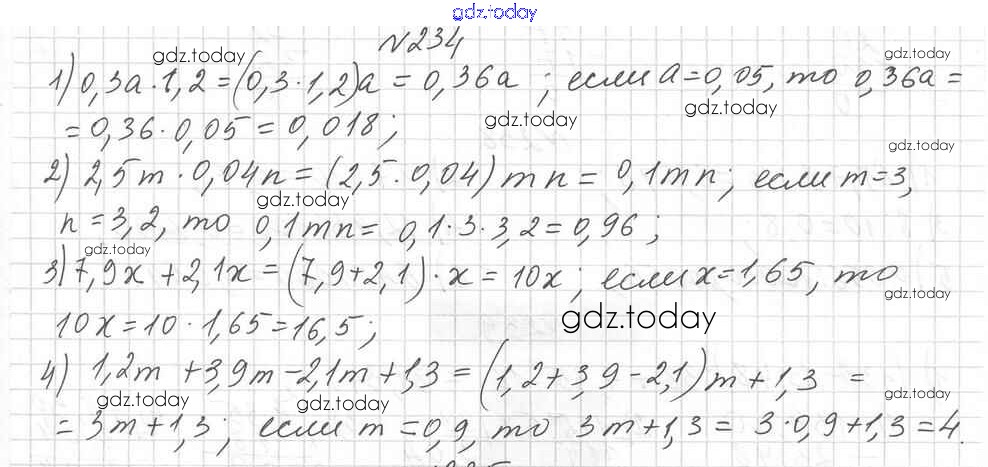 gdz.today
№234
gdz.today gdz.today
1) 0,3a·1,2=(0,3·1,2)a = 0,36a ; если a=0,05, то 0,36a =
gdz.today
= 0,36·0,05 = 0,018 ;
gdz.today gdz.today
2) 2,5m·0,04n = (2,5·0,04) mn = 0,1mn; если m=3,
gdz.today
n = 3,2, то 0,1mn = 0,1·3·3,2 = 0,96 ;
gdz.today
3) 7,9x + 2,1x = (7,9+2,1)·x = 10x ; если x=1,65, то
gdz.today gdz.today
10x = 10·1,65 = 16,5 ;
4) 1,2m + 3,9m − 2,1m + 1,3 = (1,2 + 3,9 − 2,1) m + 1,3 =
gdz.today gdz.today gdz.today
= 3m + 1,3 ; если m = 0,9, то 3m + 1,3 = 3·0,9 + 1,3 = 4.